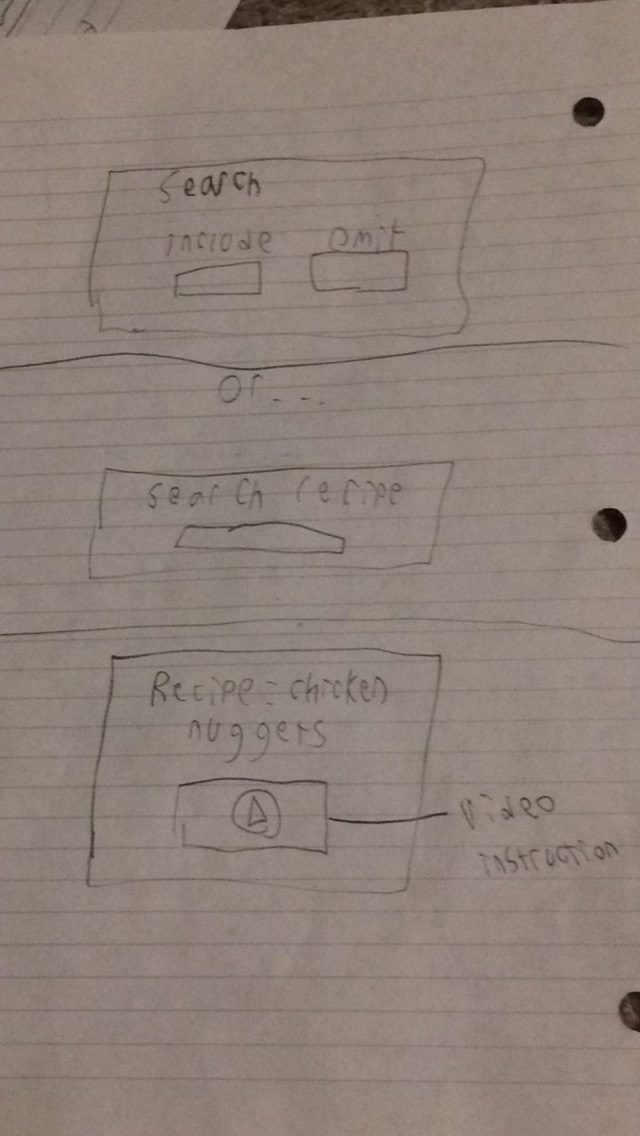 Search
include omit
or...
search recipe
Recipe: chicken
nuggers
video
instruction